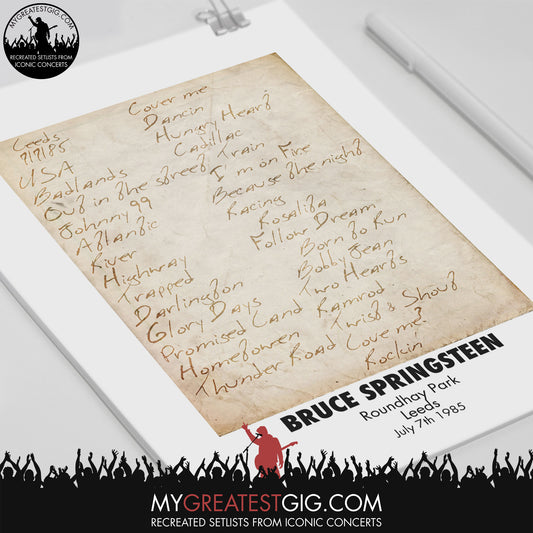 MYGREATESTGIG.COM
RECREATED SETLISTS FROM
ICONIC CONCERTS
Leeds
7/7/85
USA
Badlands
Out in the street
Johnny 99
Atlantic
River
Highway
Trapped
Darlington
Glory Days
Promised Land
Hometown
Thunder Road
Cover me
Dancin
Hungry Heart
Cadillac
Train
I'm on Fire
Because the night
Racing
Rosalita
Follow Dream
Born to Run
Bobby Jean
Two Hearts
Ramrod
Twist & Shout
Love me?
Rockin
BRUCE SPRINGSTEEN
Roundhay Park
Leeds
July 7th 1985
MYGREATESTGIG.COM
RECREATED SETLISTS FROM ICONIC CONCERTS